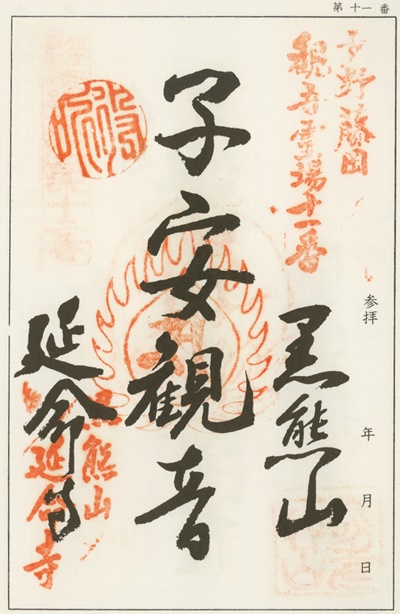 第十一番
観音霊場十一番
参拝　年　月　日
黒熊山
子安観音
延命寺
黒熊山
延命寺